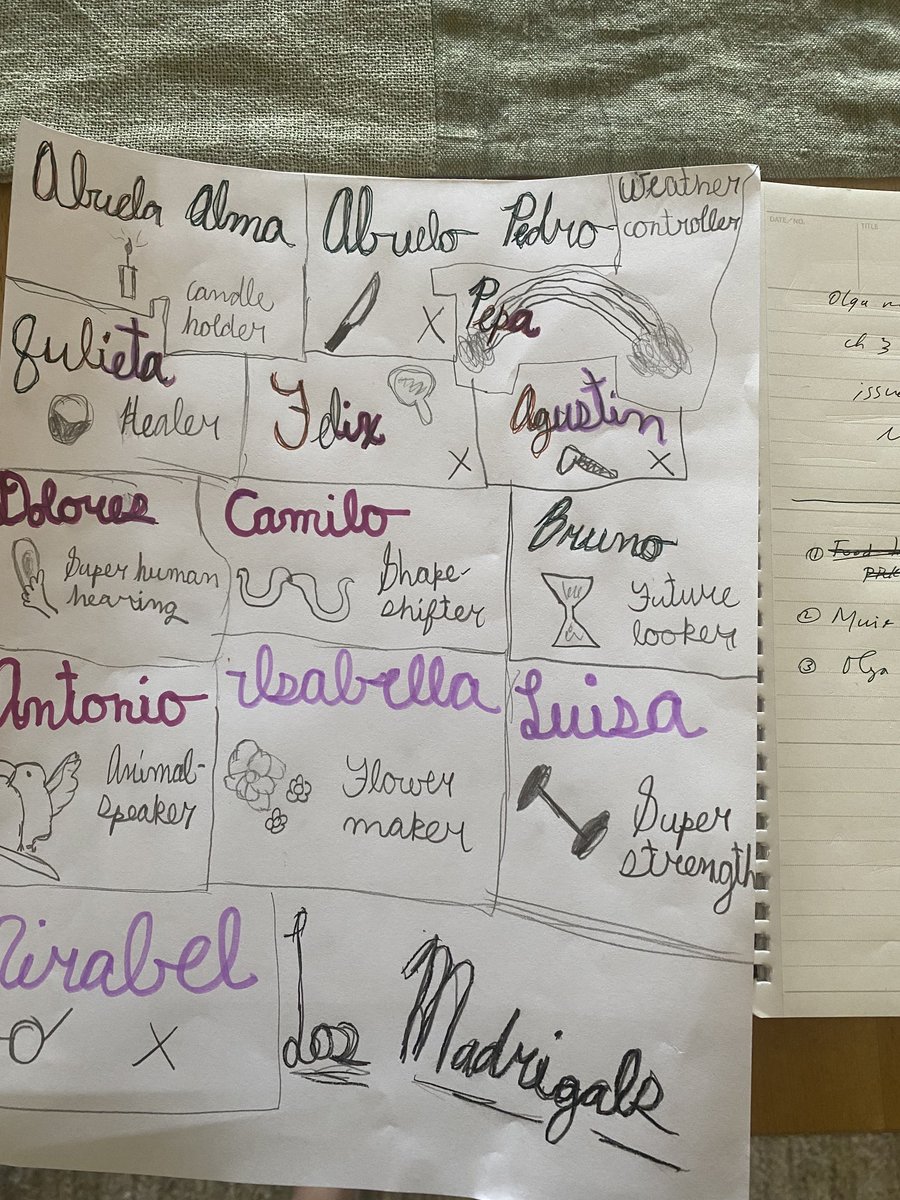 Abuela Alma
candle
holder
Abuelo Pedro
X
weather
controller
Pepa
Julieta
Healer
Felix
X
Agustin
X
Dolores
Super human
hearing
Camilo
Shape-
shifter
Bruno
Future
looker
Antonio
Animal-
speaker
Isabella
Flower
maker
Luisa
Super
strength
Mirabel
X
Los Madrigals
DATE/NO.
TITLE
Olga
ch 3
issue
①
② Muir
③ Olga